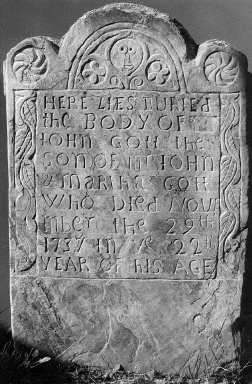 HERE LIES BURIED
the BODY OF
IOHN GOTT the
SON OF Mr IOHN
& MARTHA GOTT
WHO DIED NOVE
MBER the 29th
1737 IN ye 22th
YEAR OF HIS AGE